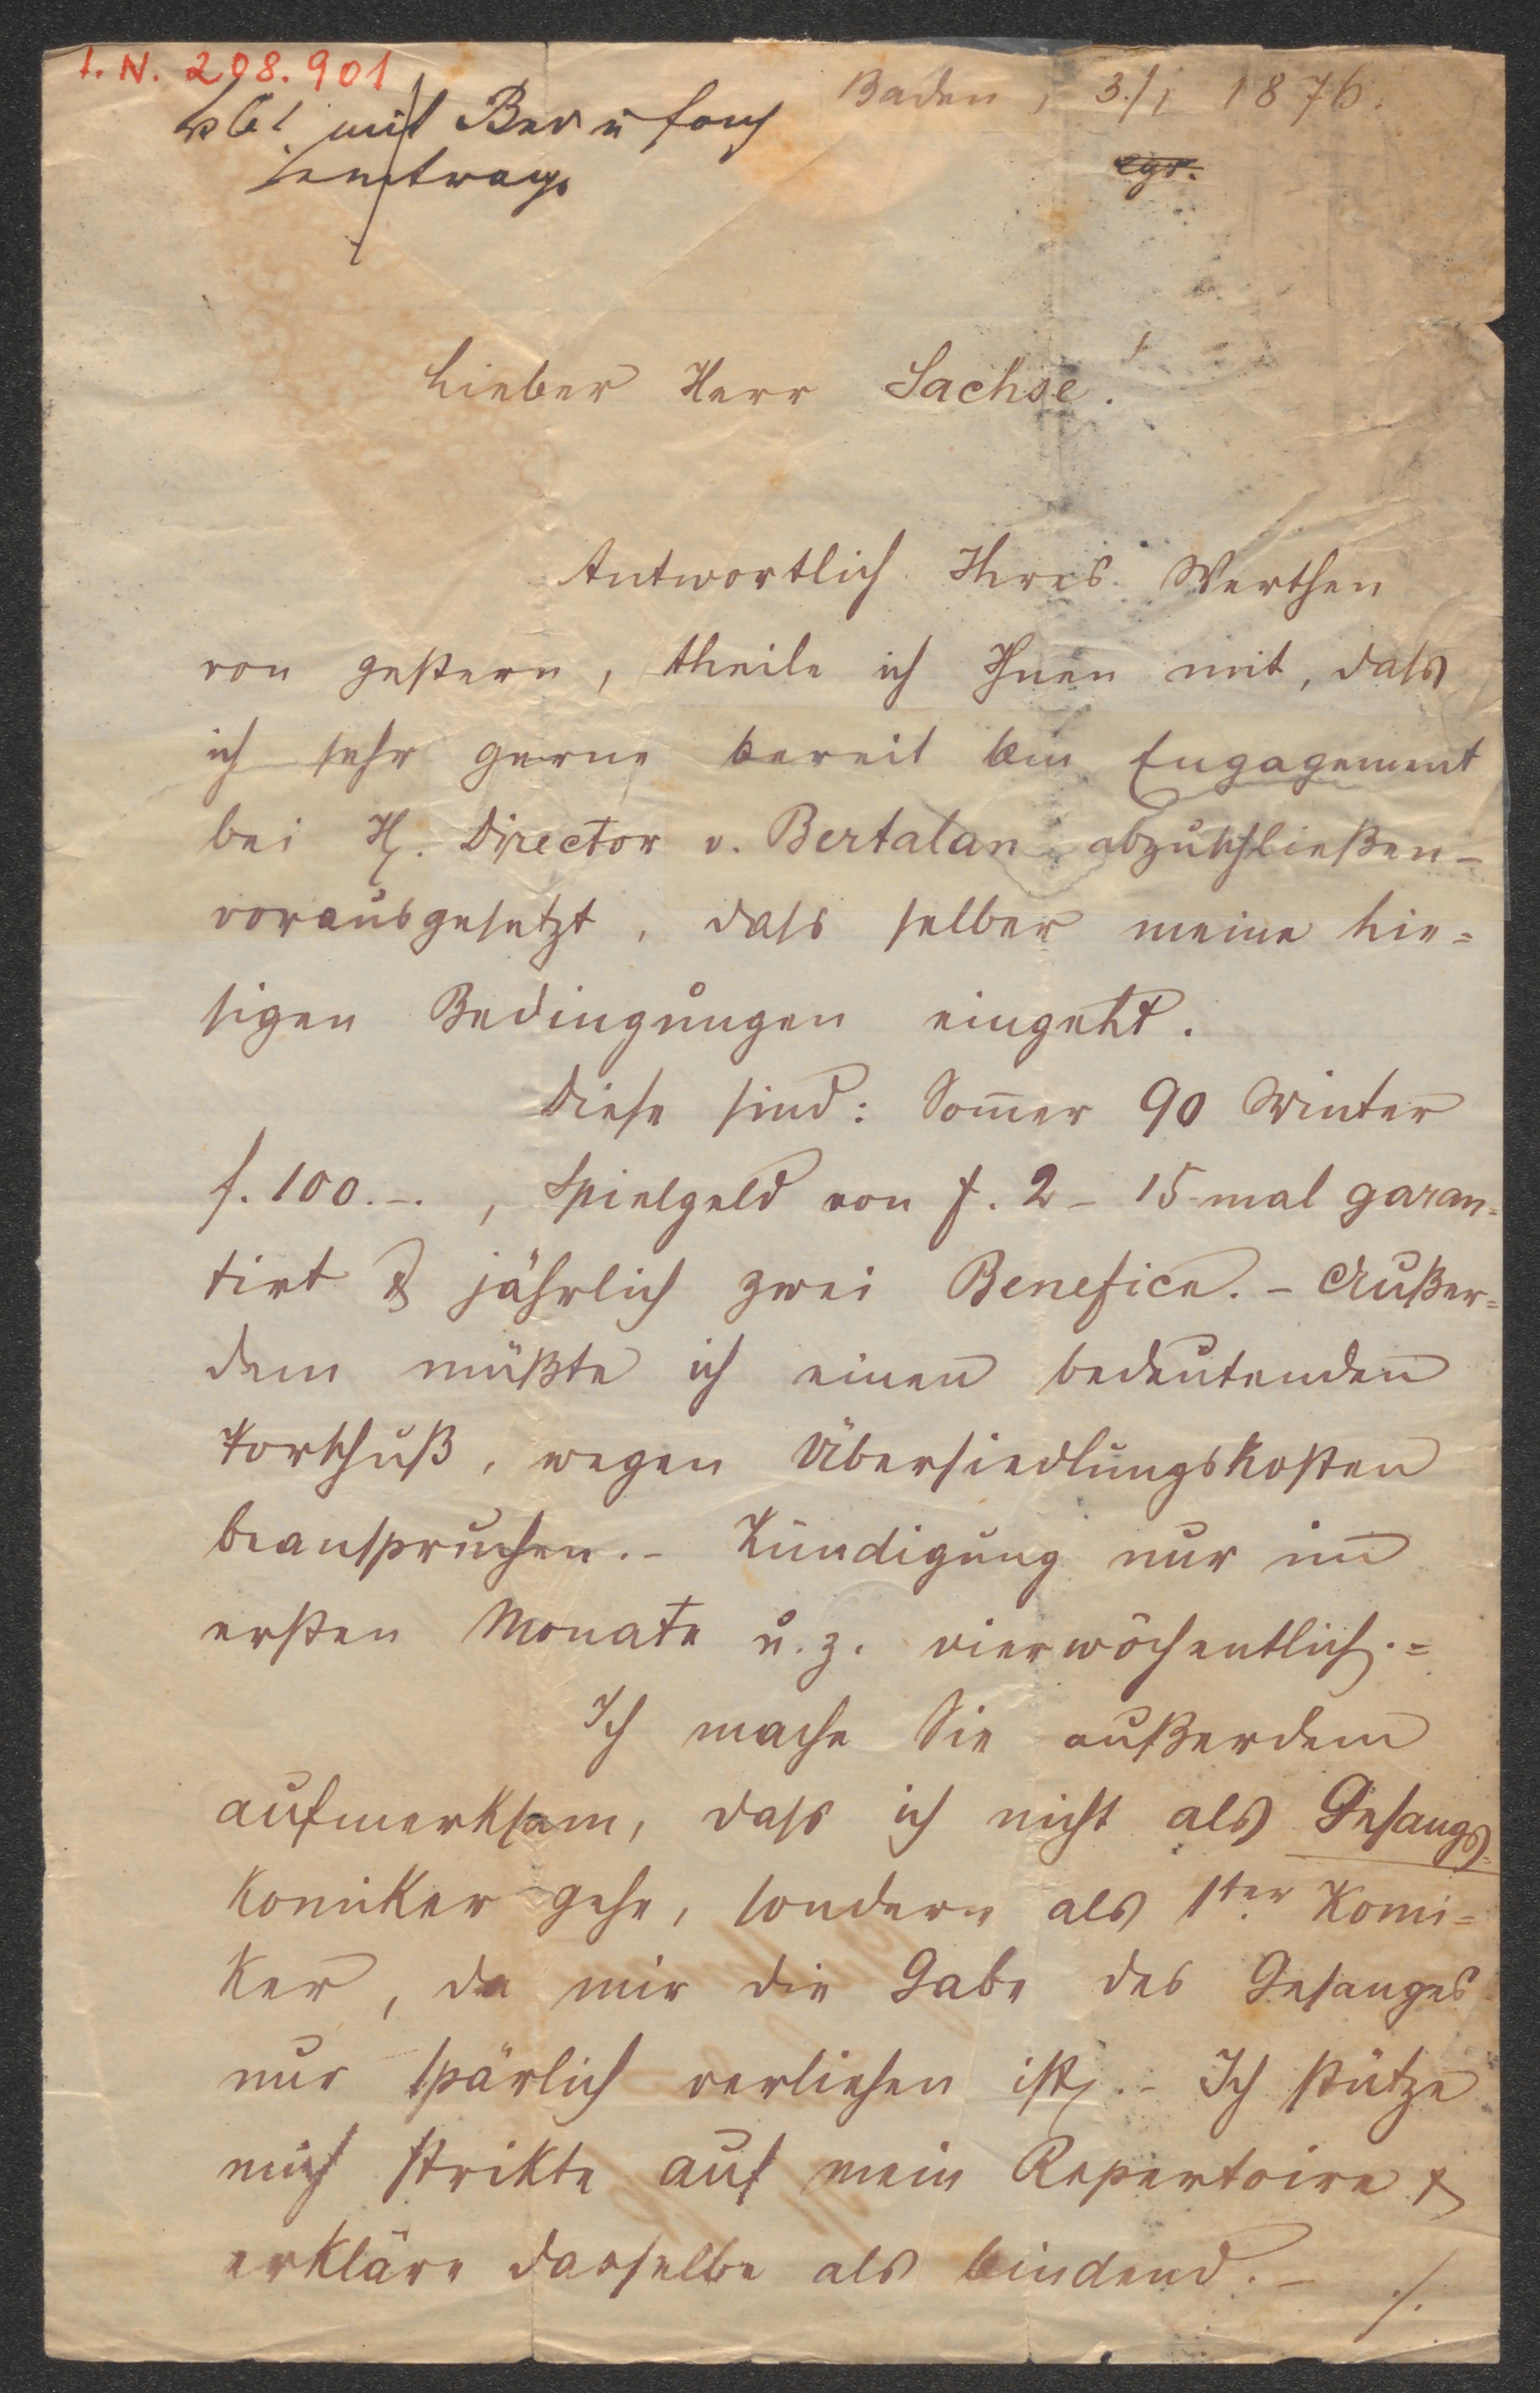 I. N. 208.901
Baden, 3./1 1876.
mit
Lieber Herr Sachse.
Antwortlich Ihres Werthen
von gestern, theile ich Ihnen mit, dass
ich sehr gerne bereit bin Engagement
bei H. Director v. Bertalan abzuschließen –
vorausgesetzt, dass selber meine hie=
sigen Bedingungen eingeht.
Diese sind: Som̄er 90 Winter
f. 100.–. , Spielgeld von f. 2 – 15 mal garan=
tirt & jährlich zwei Benefice. – Außer=
dem müßte ich einen bedeutenden
Vorschuß, wegen Übersiedlungskosten
beanspruchen. – Kündigung nur im
ersten Monate u. z. vierwöchentlich. =
Ich mache Sie außerdem
aufmerksam, dass ich nicht als Gesangs=
komiker gehe, sondern als 1ter Komi=
ker, da mir die Gabe des Gesanges
nur spärlich verliehen ist. – Ich stütze
mich strikte auf mein Repertoire &
erkläre dasselbe als bindend. – ./.